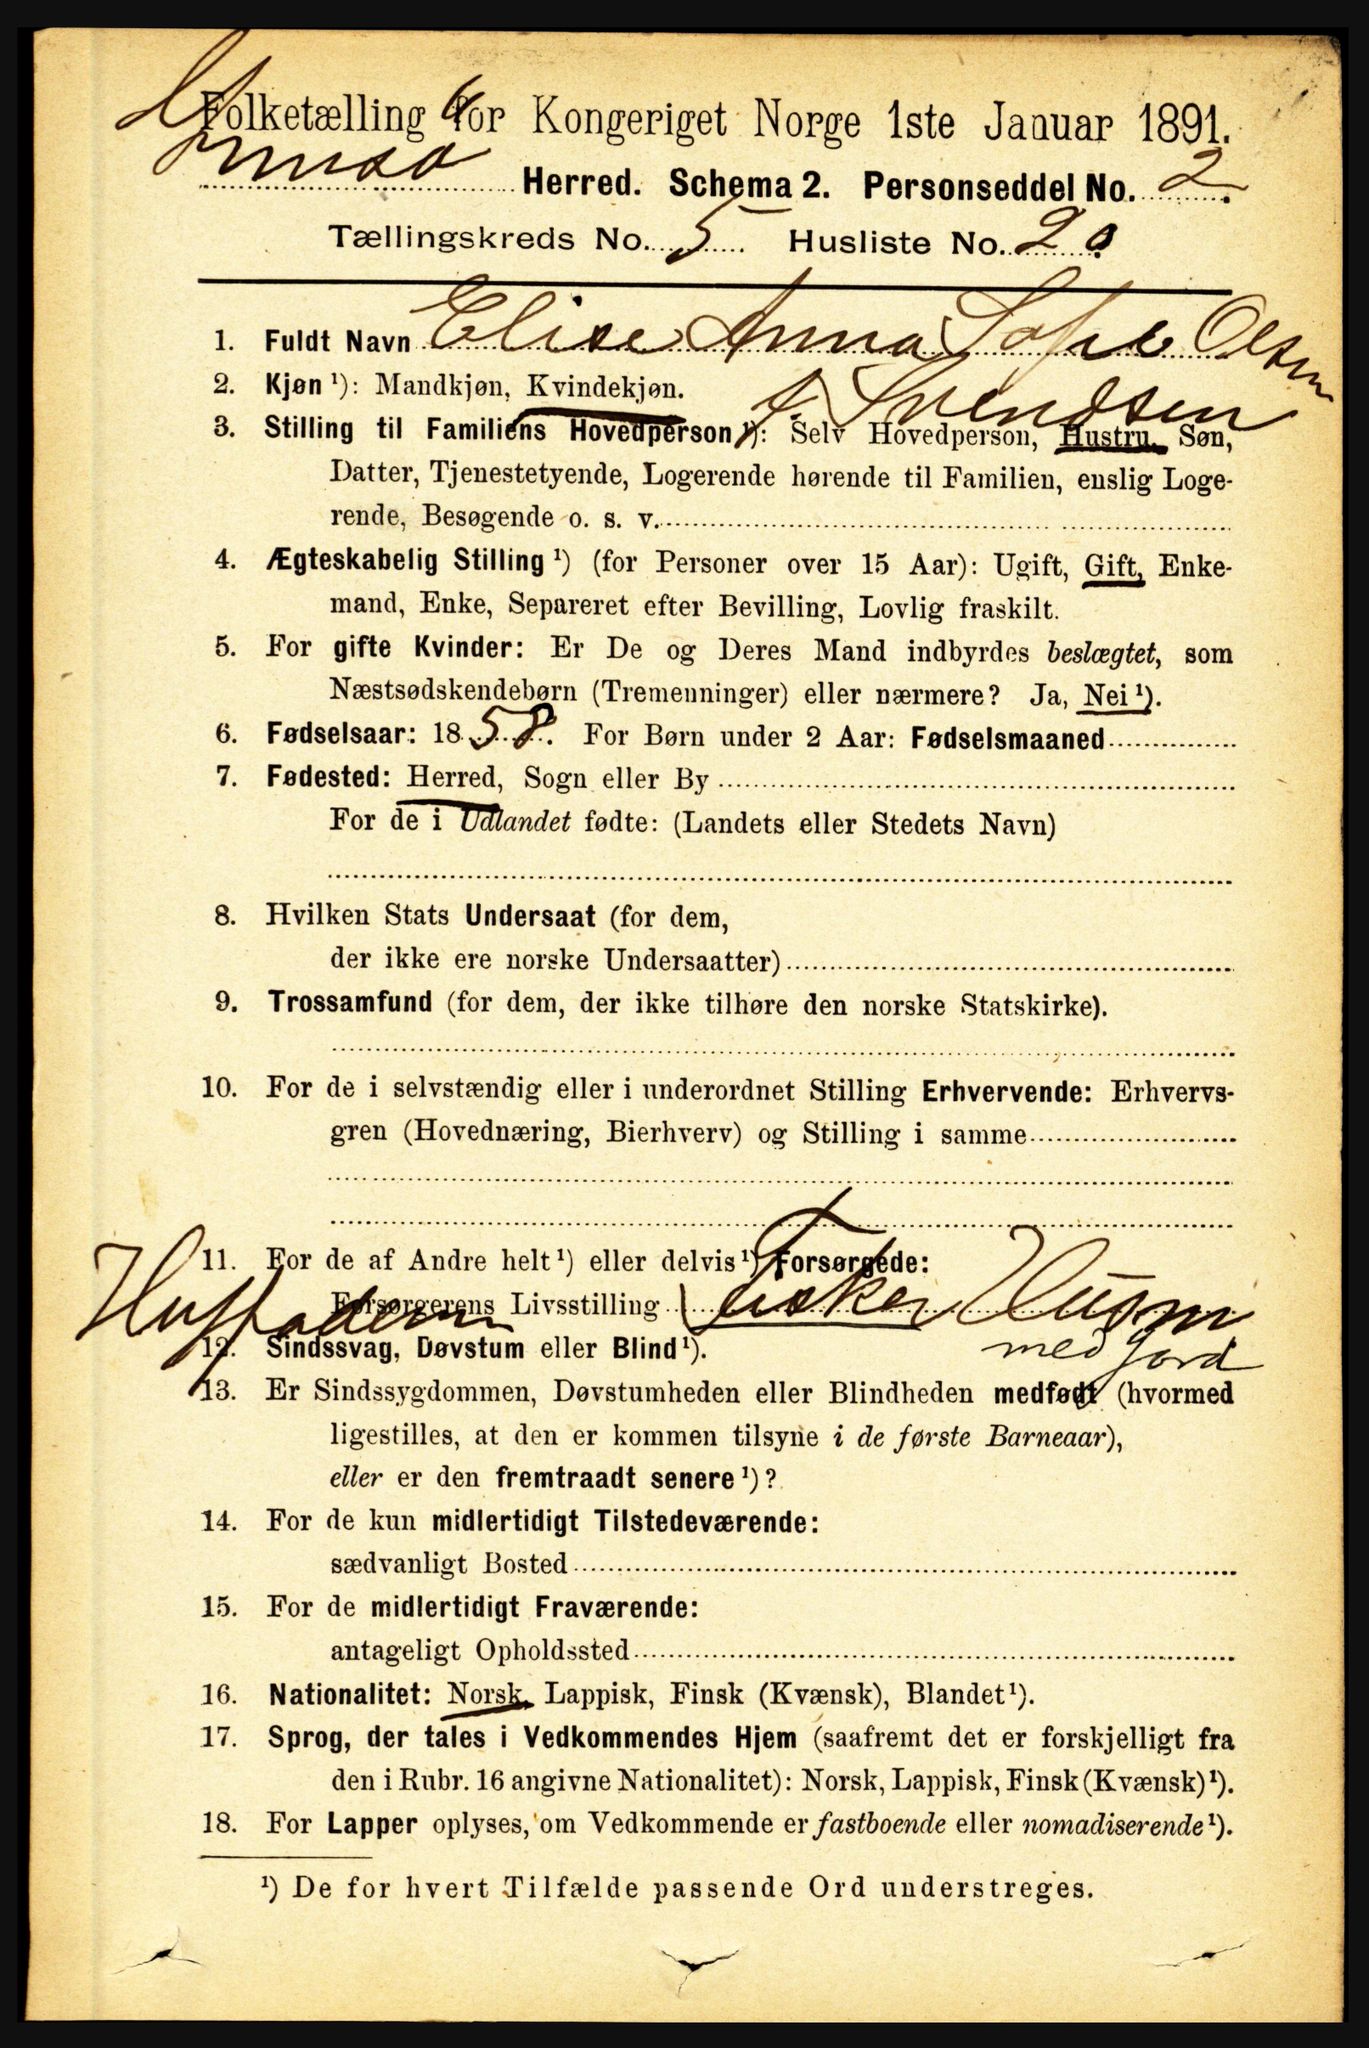 Folketælling for Kongeriget Norge 1ste Januar 1891.
Herred. Schema 2. Personseddel No. 2.
Tællingskreds No. 5 Husliste No. 20
1. Fuldt Navn Elise Anna Sofie Olsen
f. Svendsen
2. Kjøn ¹): Mandkjøn, Kvindekjøn.
3. Stilling til Familiens Hovedperson ¹): Selv Hovedperson, Hustru, Søn,
Datter, Tjenestetyende, Logerende hørende til Familien, enslig Loge-
rende, Besøgende o. s. v.
4. Ægteskabelig Stilling ¹) (for Personer over 15 Aar): Ugift, Gift, Enke-
mand, Enke, Separeret efter Bevilling, Lovlig fraskilt.
5. For gifte Kvinder: Er De og Deres Mand indbyrdes beslægtet, som
Næstsødskendebørn (Tremenninger) eller nærmere? Ja, Nei ¹).
6. Fødselsaar: 1858. For Børn under 2 Aar: Fødselsmaaned
7. Fødested: Herred, Sogn eller By
For de i Udlandet fødte: (Landets eller Stedets Navn)
8. Hvilken Stats Undersaat (for dem,
der ikke ere norske Undersaatter)
9. Trossamfund (for dem, der ikke tilhøre den norske Statskirke).
10. For de i selvstændig eller i underordnet Stilling Erhvervende: Erhvervs-
gren (Hovednæring, Bierhverv) og Stilling i samme
11. For de af Andre helt ¹) eller delvis ¹) Forsørgede:
Forsørgerens Livsstilling Fisker Husm
med Jord
12. Sindssvag, Døvstum eller Blind ¹).
13. Er Sindssygdommen, Døvstumheden eller Blindheden medfødt (hvormed
ligestilles, at den er kommen tilsyne i de første Barneaar),
eller er den fremtraadt senere ¹)?
14. For de kun midlertidigt Tilstedeværende:
sædvanligt Bosted
15. For de midlertidigt Fraværende:
antageligt Opholdssted
16. Nationalitet: Norsk, Lappisk, Finsk (Kvænsk), Blandet ¹).
17. Sprog, der tales i Vedkommendes Hjem (saafremt det er forskjelligt fra
den i Rubr. 16 angivne Nationalitet): Norsk, Lappisk, Finsk (Kvænsk) ¹).
18. For Lapper oplyses, om Vedkommende er fastboende eller nomadiserende ¹).
¹) De for hvert Tilfælde passende Ord understreges.